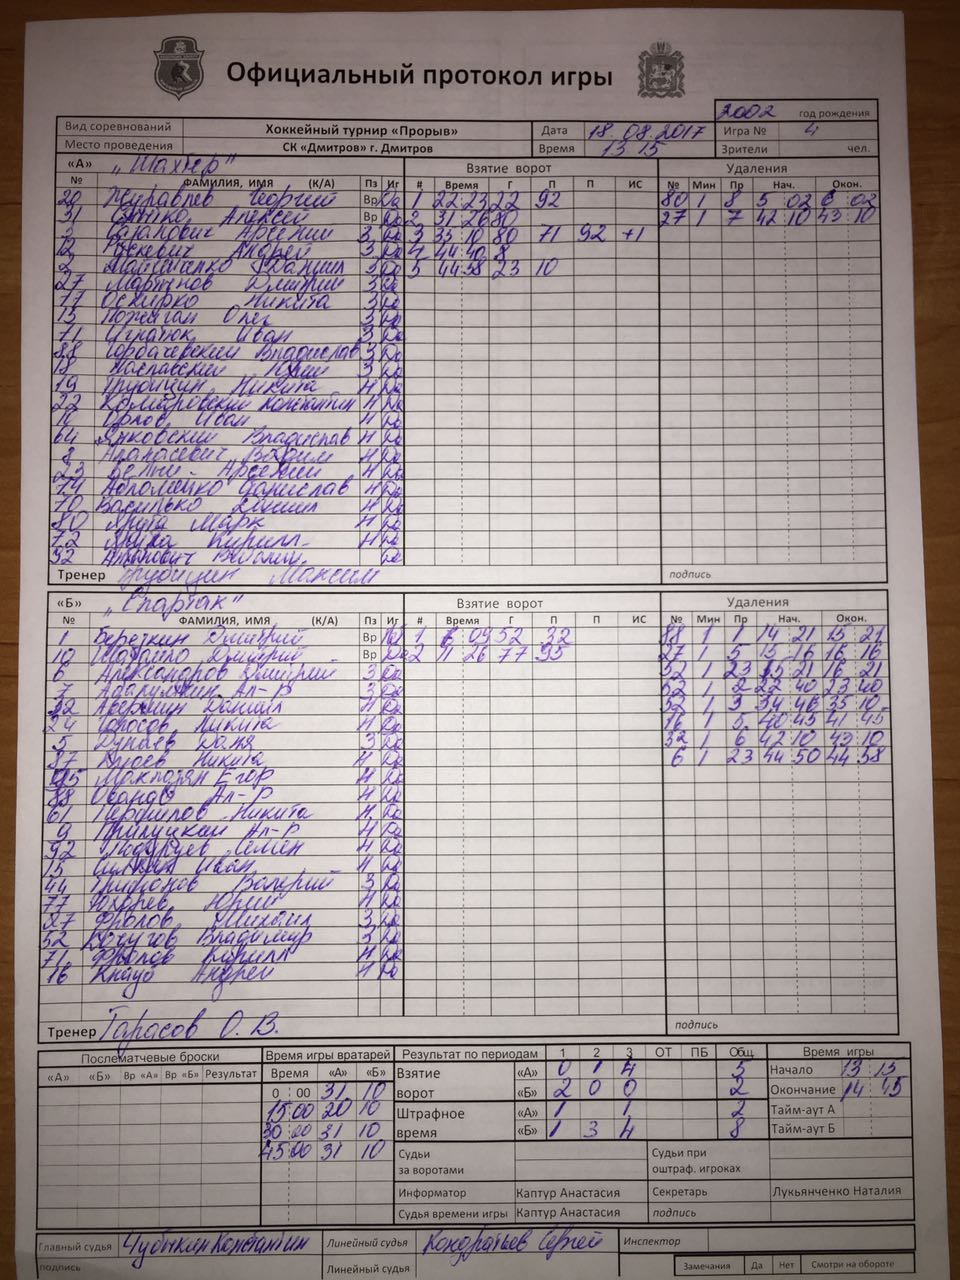 Официальный протокол игры
2002 год рождения
Вид соревнований Хоккейный турнир «Прорыв» Дата 18.08.2017 Игра № 4
Место проведения СК «Дмитров» г. Дмитров Время 13 15 Зрители чел.
«А» "Шахтер" Взятие ворот Удаления
№ ФАМИЛИЯ, ИМЯ (К/А) Пз Иг # Время Г П П ИС № Мин Пр Нач. Окон.
20 Журавлев Георгий Вр Да 1 22 23 22 92 80 1 8 5 02 6 02
31 Алексей Вр Да 2 31 26 80 27 1 7 42 10 43 10
3 Сазанович Арсений З Да 3 35 10 80 71 92 +1
12 Андрей З Да 4 44 40 8
2 Даниил З Да 5 44 58 23 10
27 Мартынов Дмитрий З Да
77 Оскирко Никита З Да
15 Олег З Да
71 Игнатюк Иван З Да
88 Горбачевский Владислав З Да
18 Юрий З Да
19 Трубицин Никита Н Да
22 Комаровский Константин Н Да
Орлов Иван Н Да
64 Янковский Владислав Н Да
8 Апанасевич Вадим Н Да
23 Арсений Н Да
74 Борислав Н Да
70 Василько Даниил Н Да
80 Марк Н Да
72 Кирилл Н Да
92 Виталий Да
Тренер Трубицин Максим подпись
«Б» "Спартак" Взятие ворот Удаления
№ ФАМИЛИЯ, ИМЯ (К/А) Пз Иг # Время Г П П ИС № Мин Пр Нач. Окон.
1 Березкин Дмитрий Вр Да 1 6 09 52 32 88 1 1 14 21 15 21
10 Шабанло Дмитрий Вр Да 2 11 26 77 95 27 1 5 15 16 16 16
6 Александров Дмитрий З Да 52 1 23 15 21 16 21
7 Ал-р З Да 52 1 2 22 40 23 40
32 Аверкин Даниил Н Да 52 1 3 34 46 35 10
24 Никита Н Да 16 1 5 40 45 41 45
5 Дунаев З Да 32 1 6 42 10 43 10
87 Никита Н Да 6 1 23 44 50 44 58
Егор Н Да
88 Ал-р Н Да
61 Никита Н Да
9 Ал-р Н Да
92 Семен Н Да
15 Иван Н Да
44 Трифонов Валерий З Да
77 Юхарев Юрий Н Да
27 Фролов Михаил З Да
52 Кочугов Владимир З Да
71 Фролов Кирилл Н Да
16 Кнауб Андрей Н Да
Тренер Тарасов О. В. подпись
Послематчевые броски Время игры вратарей Результат по периодам 1 2 3 ОТ ПБ Общ. Время игры
«А» «Б» Вр «А» Вр «Б» Результат Время «А» «Б» Взятие «А» 0 1 4 5 Начало 13 15
0 00 31 10 ворот «Б» 2 0 0 2 Окончание 14 45
15 00 20 10 Штрафное «А» 1 1 2 Тайм-аут А
30 00 31 10 время «Б» 1 3 4 8 Тайм-аут Б
45 00 31 10 Судьи за воротами Судьи при оштраф. игроках
Информатор Каптур Анастасия Секретарь Лукьянченко Наталия
Судья времени игры Каптур Анастасия подпись
Главный судья Чубыкин Константин Линейный судья Кондратьев Сергей Инспектор
подпись Линейный судья Замечания Да Нет Смотри на обороте